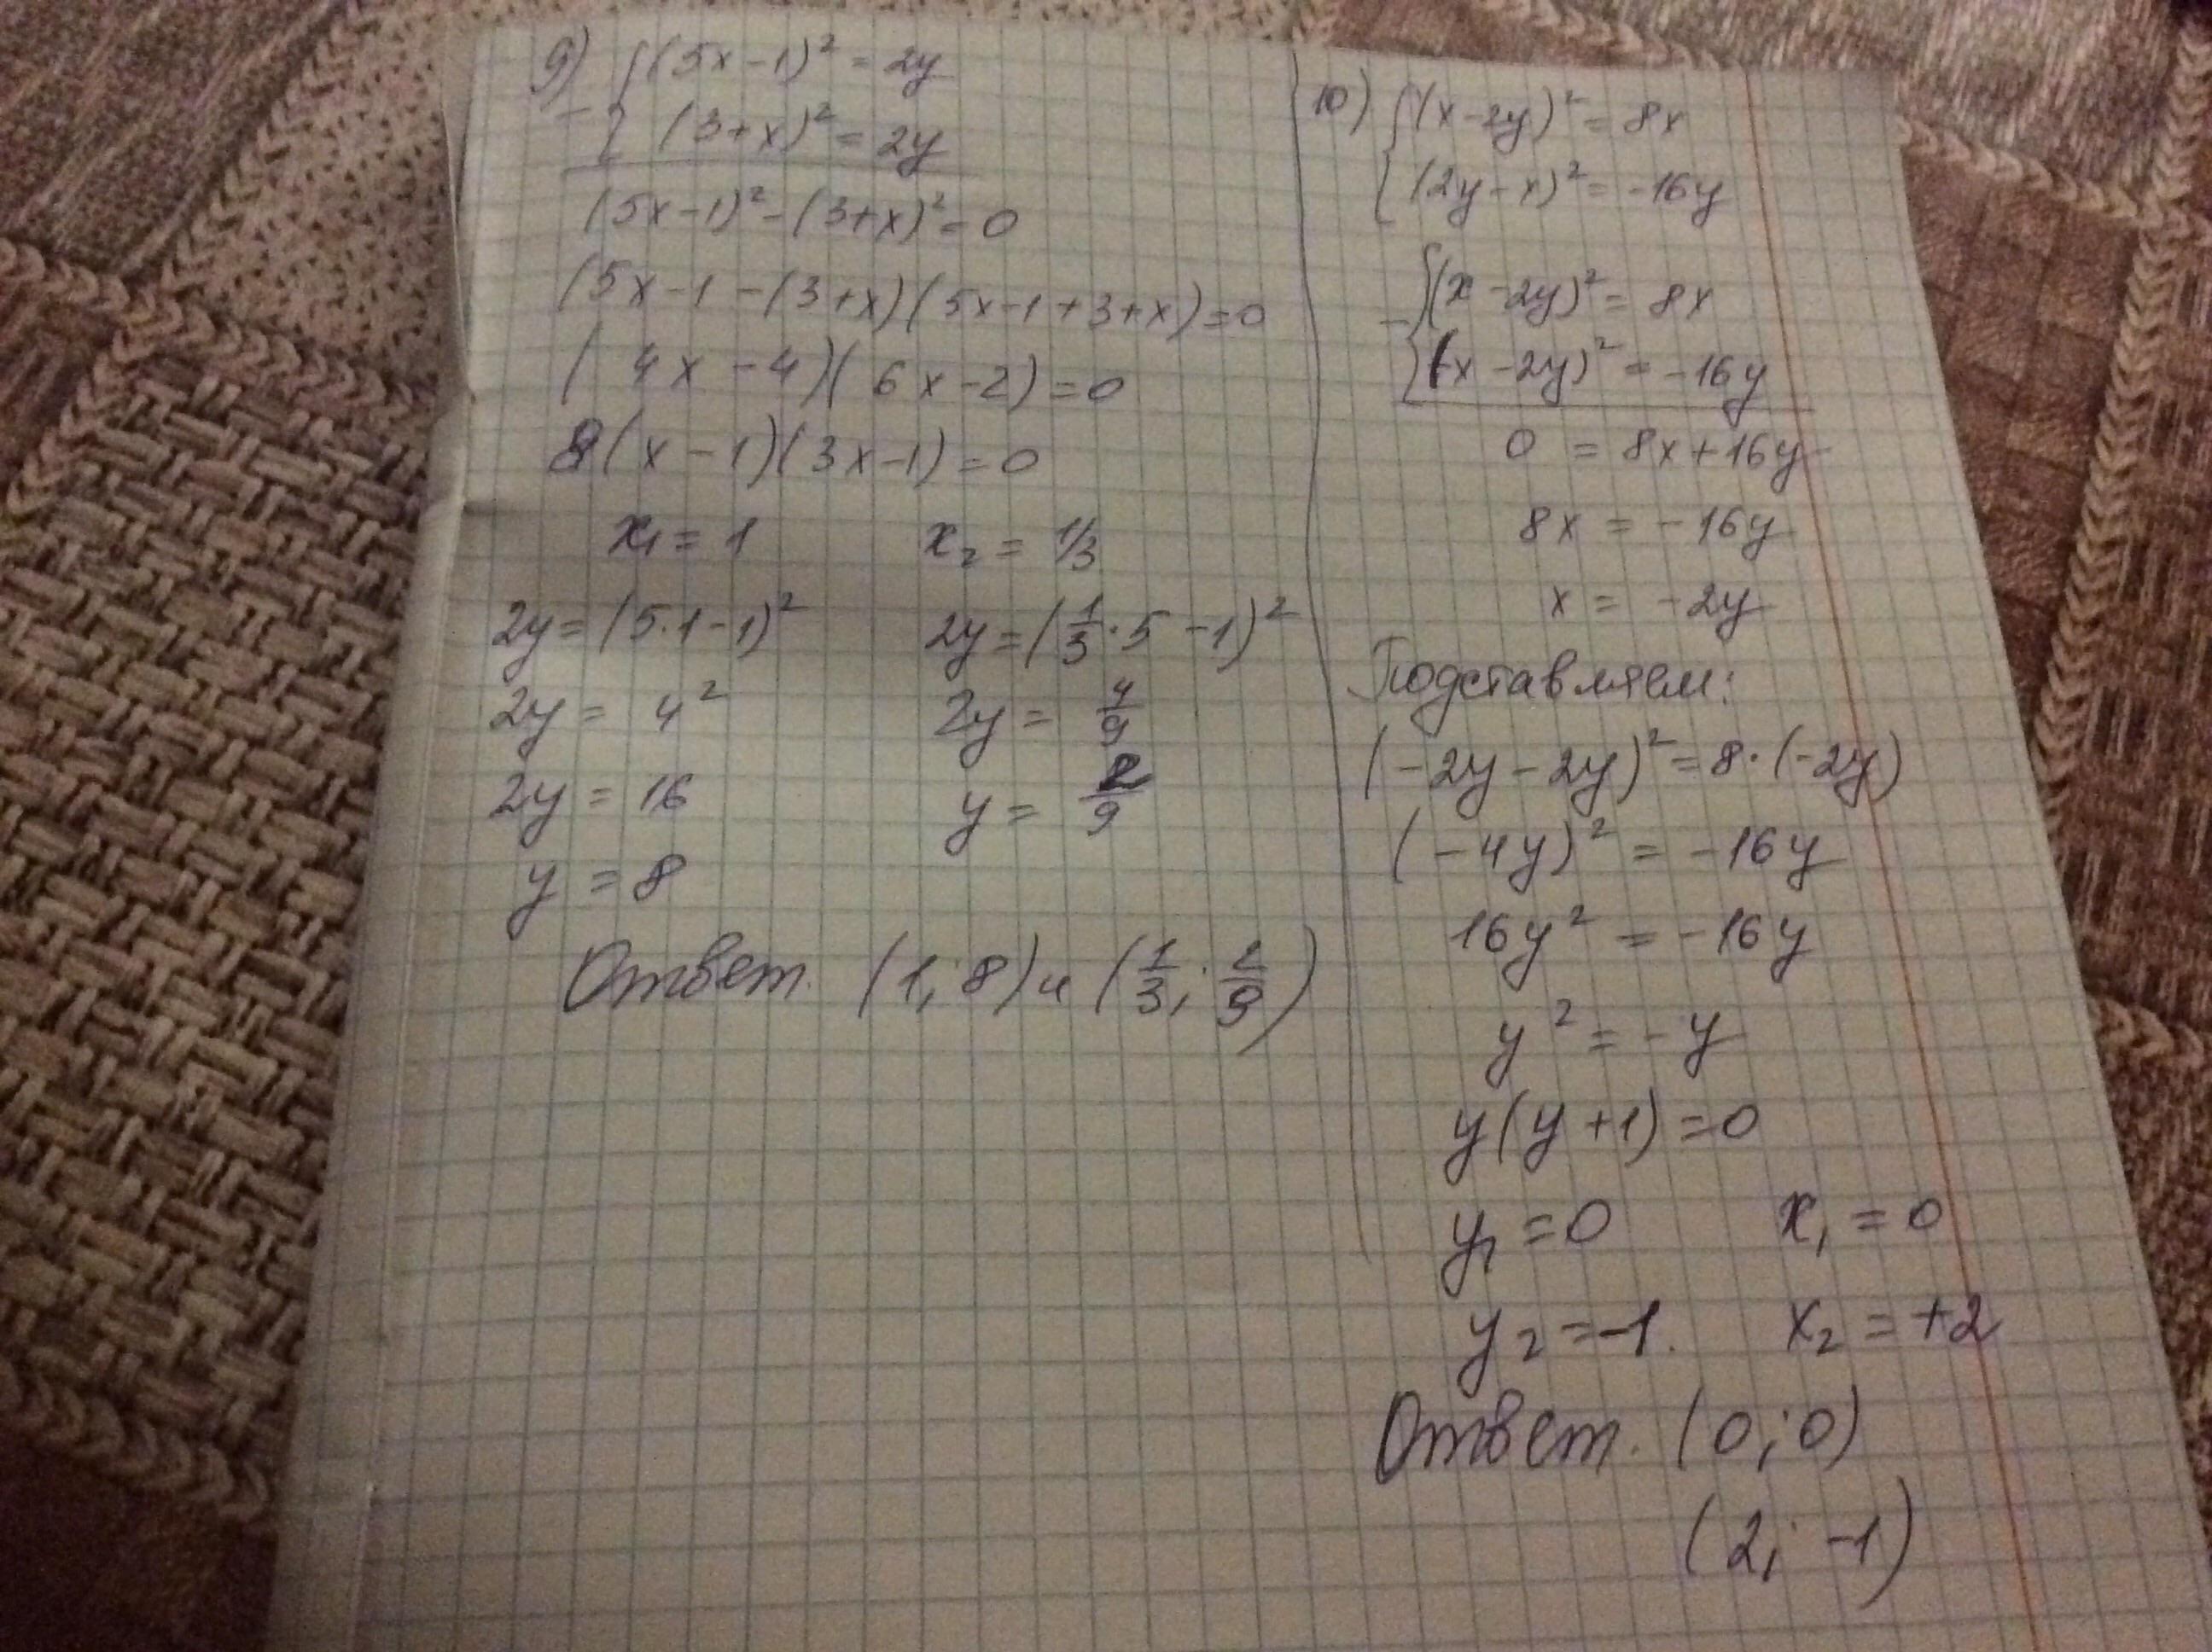 9) { (5x-1)² = 2y
- { (3+x)² = 2y
(5x-1)² - (3+x)² = 0
(5x-1-(3+x)(5x-1+3+x) = 0
( 4x - 4)( 6x-2) = 0
8(x-1)(3x-1) = 0
x₁ = 1 x₂ = 1/3
2y = (5·1-1)² 2y = (1/3·5-1)²
2y = 4² 2y = 4/9
2y = 16 y = 2/9
y = 8
Ответ. (1; 8) и (1/3; 2/9)
10) { (x-2y)² = 8x
{ (2y-x)² = -16y
{ (x-2y)² = 8x
- { (x-2y)² = -16y
0 = 8x+16y
8x = -16y
x = -2y
Подставляем:
(-2y-2y)² = 8·(-2y)
(-4y)² = -16y
16y² = -16y
y² = -y
y(y+1) = 0
y₁ = 0 x₁ = 0
y₂ = -1. x₂ = +2
Ответ. (0; 0)
(2; -1)